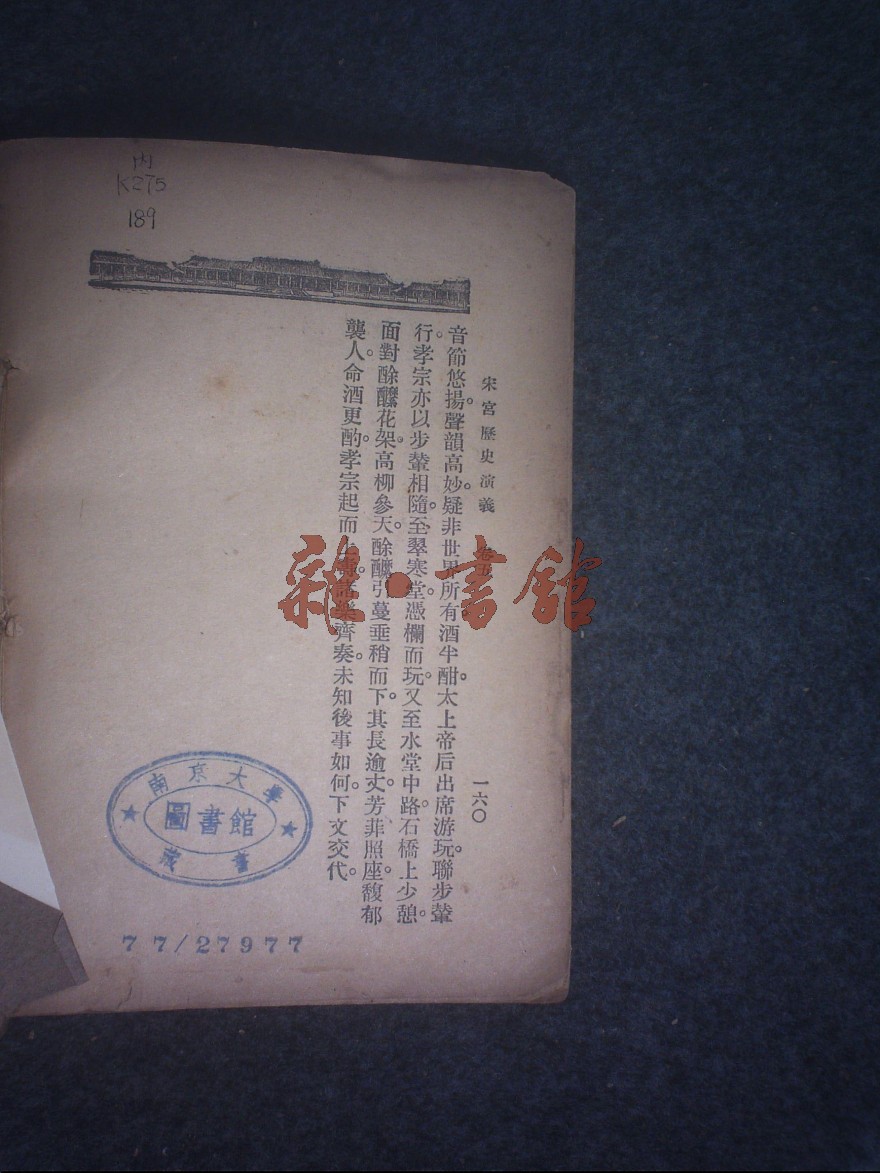 内
K275
189
宋宮歷史演義 卷五 一六〇
音節悠揚。聲韻高妙。疑非世界所有酒半酣。太上帝后出席游玩。聯步輦
行。孝宗亦以步輦相隨。至翠寒堂。憑欄而玩。又至水堂中路。石橋上少憩。
面對酴醾花架。高柳參天。酴醾引蔓垂稍而下。其長逾丈。芳菲照座。馥郁
襲人。命酒更酌。孝宗起而 諸樂齊奏。未知後事如何。下文交代。
雜·書館
南京大學
圖書館
藏書
77/27977